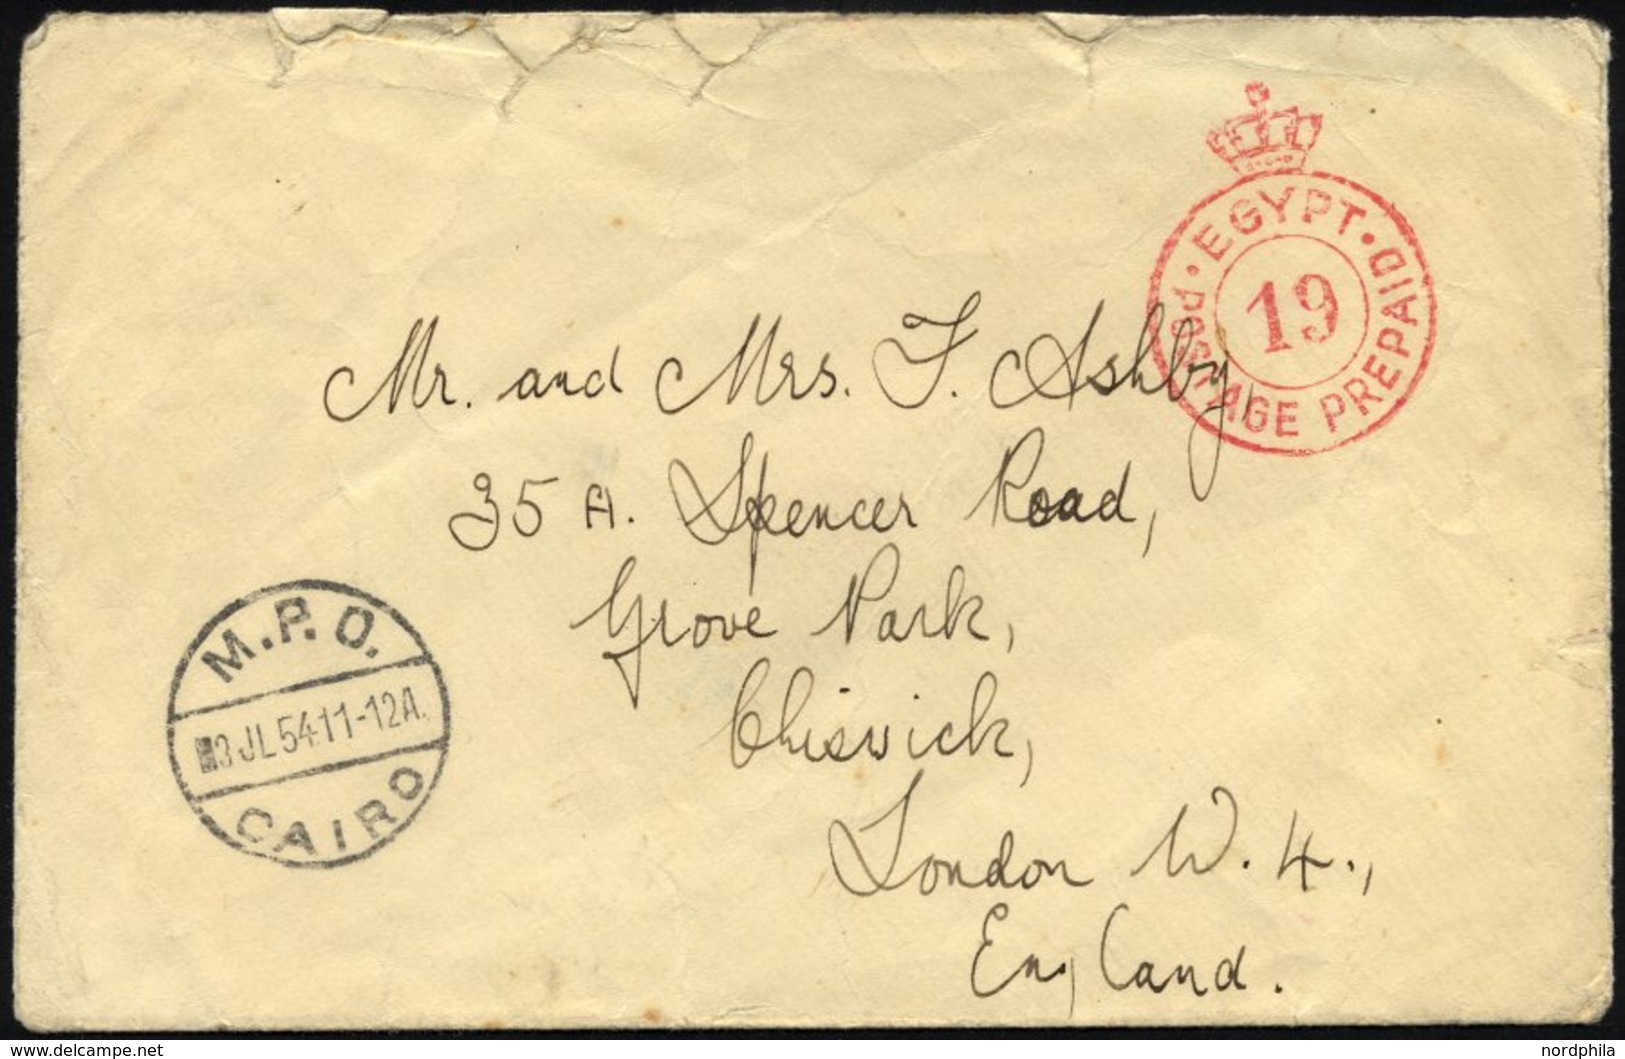 ·EGYPT·
POSTAGE PREPAID
19
Mr. and Mrs. F. Ashby,
35A. Spencer Road,
Grove Park,
Chiswick,
London W.4.,
England.
M.P.O.
3 JL 54 11-12A.
CAIRO
the-PhilaMarket for delcampe.net
nordphila